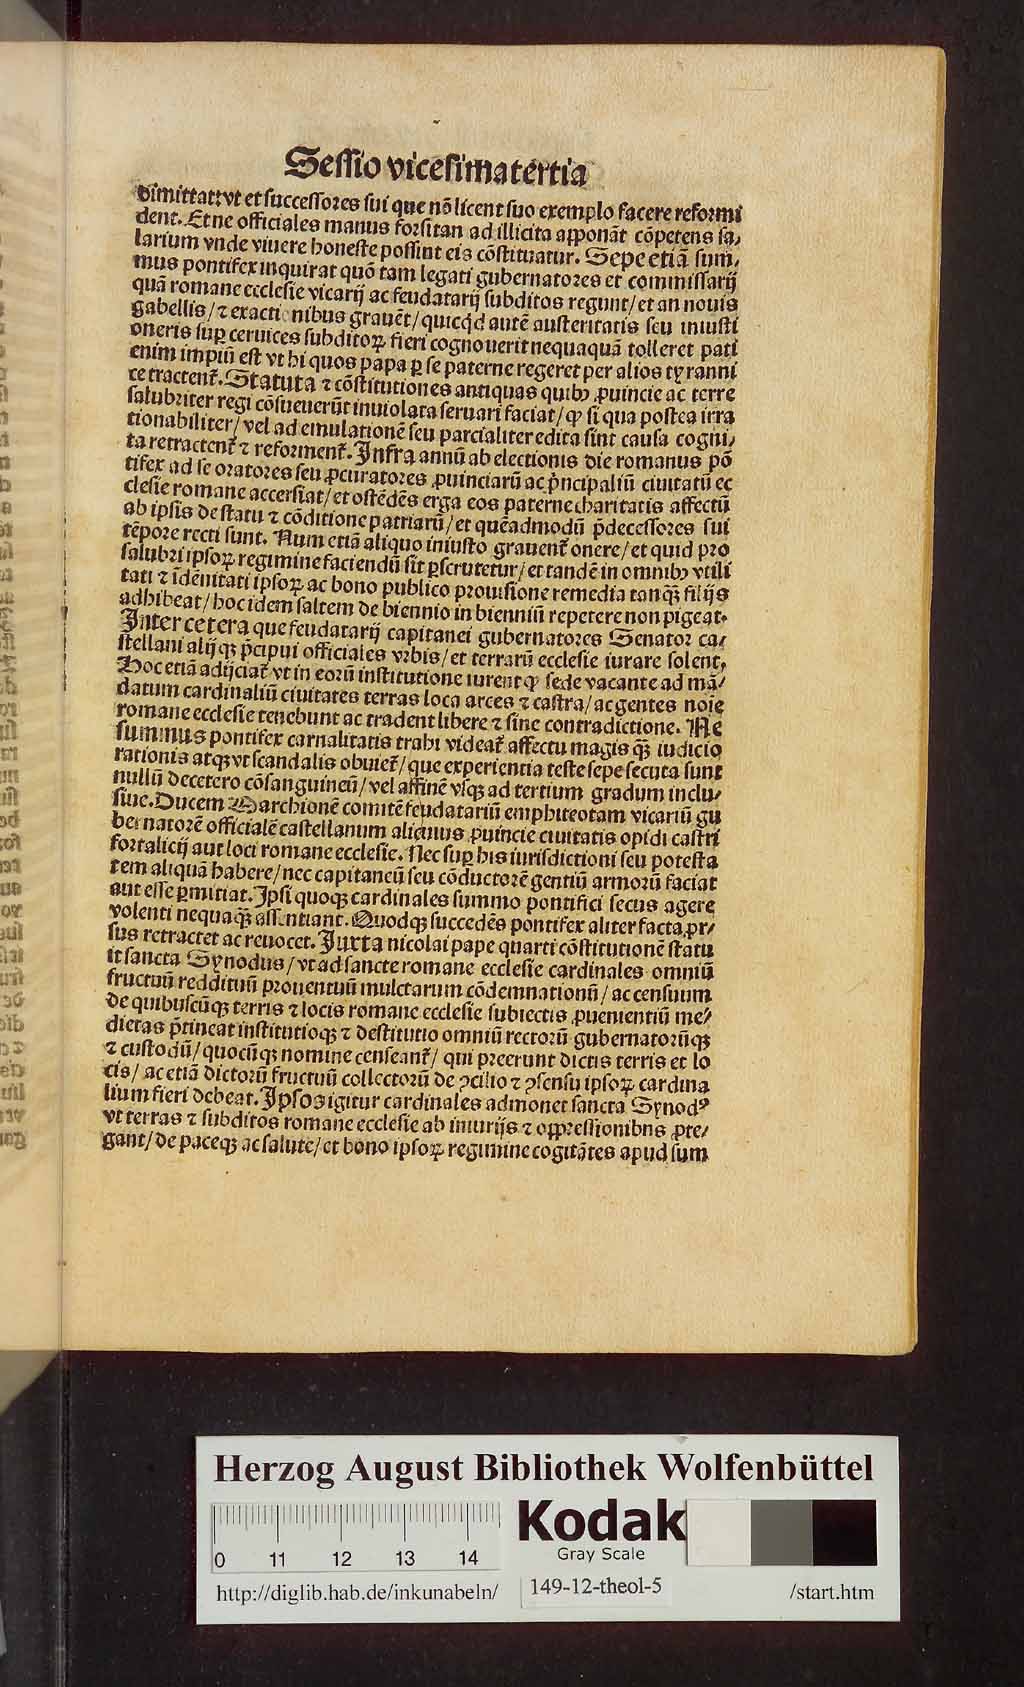 Sessio vicesimatertia
dimittat: vt et successores sui que nō licent suo exemplo facere reformi
dent. Et ne officiales manus forsitan ad illicita apponāt cōpetens sa/
larium vnde viuere honeste possint eis cōstituatur. Sepe etiā sum/
mus pontifex inquirat quō tam legati gubernatores et commissarij
quā romane ecclesie vicarij ac feudatarij subditos regunt/ et an nouis
gabellis/ ⁊ exactionibus grauēt/ quicqd autē austeritatis seu iniusti
oneris sup ceruices subditoꝝ fieri cognouerit nequaquā tolleret pati
enim impiū est vt hi quos papa ꝑ se paterne regeret per alios tyranni
ce tractent᷑. Statuta ⁊ cōstitutiones antiquas quibꝫ ꝓuincie ac terre
salubriter regi cōsueuerūt inuiolata seruari faciat/ ꝙ si qua postea irra
tionabiliter/ vel ad emulationē seu parcialiter edita sint causa cogni/
ta retractent᷑ ⁊ reforment᷑. Infra annū ab electionis die romanus pō
tifex ad se oratores seu ꝓcuratores ꝓuinciarū ac p̄ncipaliū ciuitatū ec
clesie romane accersiat/ et ostēdēs erga eos paterne charitatis affectū
ab ipsis de statu ⁊ cōditione patriarū/ et quēadmodū p̄decessores sui
tēpore recti sunt. Num etiā aliquo iniusto grauent᷑ onere/ et quid pro
salubri ipsoꝝ regimine faciendū sit ꝑscrutetur/ et tandē in omnibꝫ vtili
tati ⁊ īdēnitati ipsoꝝ ac bono publico prouisione remedia tanꝗ̄ filijs
adhibeat/ hoc idem saltem de biennio in bienniū repetere non pigeat.
Inter cetera que feudatarij capitanei gubernatores Senator ca/
stellani alijqꝫ p̄cipui officiales vrbis/ et terrarū ecclesie iurare solent,
Hoc etiā adijciat᷑ vt in eorū institutione iurent ꝙ sede vacante ad mā/
datum cardinaliū ciuitates terras loca arces ⁊ castra/ ac gentes noīe
romane ecclesie tenebunt ac tradent libere ⁊ sine contradictione. Ne
summus pontifex carnalitatis trahi videat᷑ affectu magis ꝗ̄ iudicio
rationis atqꝫ vt scandalis obuiet᷑/ que experientia teste sepe secuta sunt
nullū decetero cōsanguineū/ vel affinē vsqꝫ ad tertium gradum inclu/
siue. Ducem Marchionē comitē feudatariū emphiteotam vicariū gu
bernatorē officialē castellanum alicuius ꝓuincie ciuitatis opidi castri
fortalicij aut loci romane ecclesie. Nec sup his iurisdictioni seu potesta
tem aliquā habere/ nec capitaneū seu cōductorē gentiū armorū faciat
aut esse ꝑmittat. Ipsi quoqꝫ cardinales summo pontifici secus agere
volenti nequaꝗ̄ assentiant. Quodqꝫ succedēs pontifex aliter facta ꝓr/
sus retractet ac reuocet. Iuxta nicolai pape quarti cōstitutionē statu
it sancta Synodus/ vt ad sancte romane ecclesie cardinales omniū
fructuū reddituū prouentuū mulctarum cōdemnationū/ ac censuum
de quibuscūqꝫ terris ⁊ locis romane ecclesie subiectis ꝓuenientiū me/
dietas ꝑtineat institutioqꝫ ⁊ destitutio omniū rectorū gubernatorūqꝫ
⁊ custodū/ quocūqꝫ nomine censeant᷑/ qui preerunt dictis terris et lo
cis/ ac etiā dictorū fructuū collectorū de ꝯcilio ⁊ ꝯsensu ipsoꝝ cardina
lium fieri debeat. Ipsos igitur cardinales admonet sancta Synodꝰ
vt terras ⁊ subditos romane ecclesie ab iniurijs ⁊ oppressionibns ꝓte/
gant/ de paceqꝫ ac salute/ et bono ipsoꝝ regimine cogitātes apud sum
Herzog August Bibliothek Wolfenbüttel
0 11 12 13 14
Kodak
Gray Scale
http://diglib.hab.de/inkunabeln/ 149-12-theol-5 /start.htm